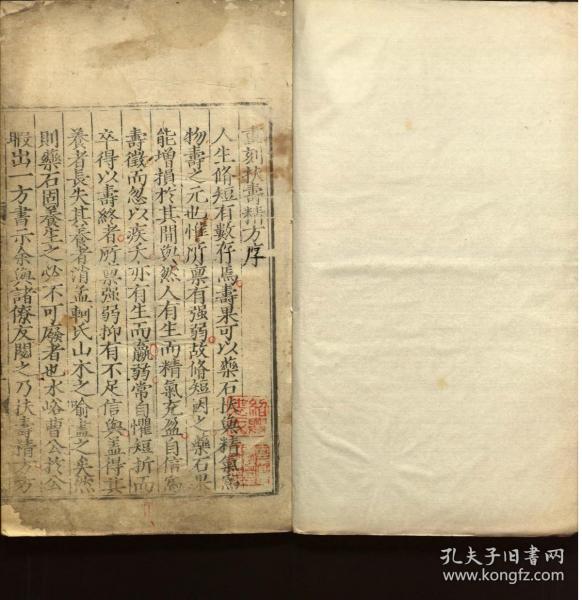 重刻扶壽精方序
人生脩短有數存焉壽果可以藥石扶歟精氣為
物壽之元也惟所禀有强弱故脩短因之藥石果
能增損於其間歟然人有生而精氣充盈自信為
壽徵而忽以疾夭亦有生而羸弱常自懼短折而
卒得以壽終者所禀强弱抑有不足信與盖得其
養者長失其養者消孟軻氏山木之喻盡之矣然
則藥石固養生之必不可廢者也水峪曹公於公
暇出一方書示余與諸僚友閱之乃扶壽精方方
孔夫子旧书网
www.kongfz.com